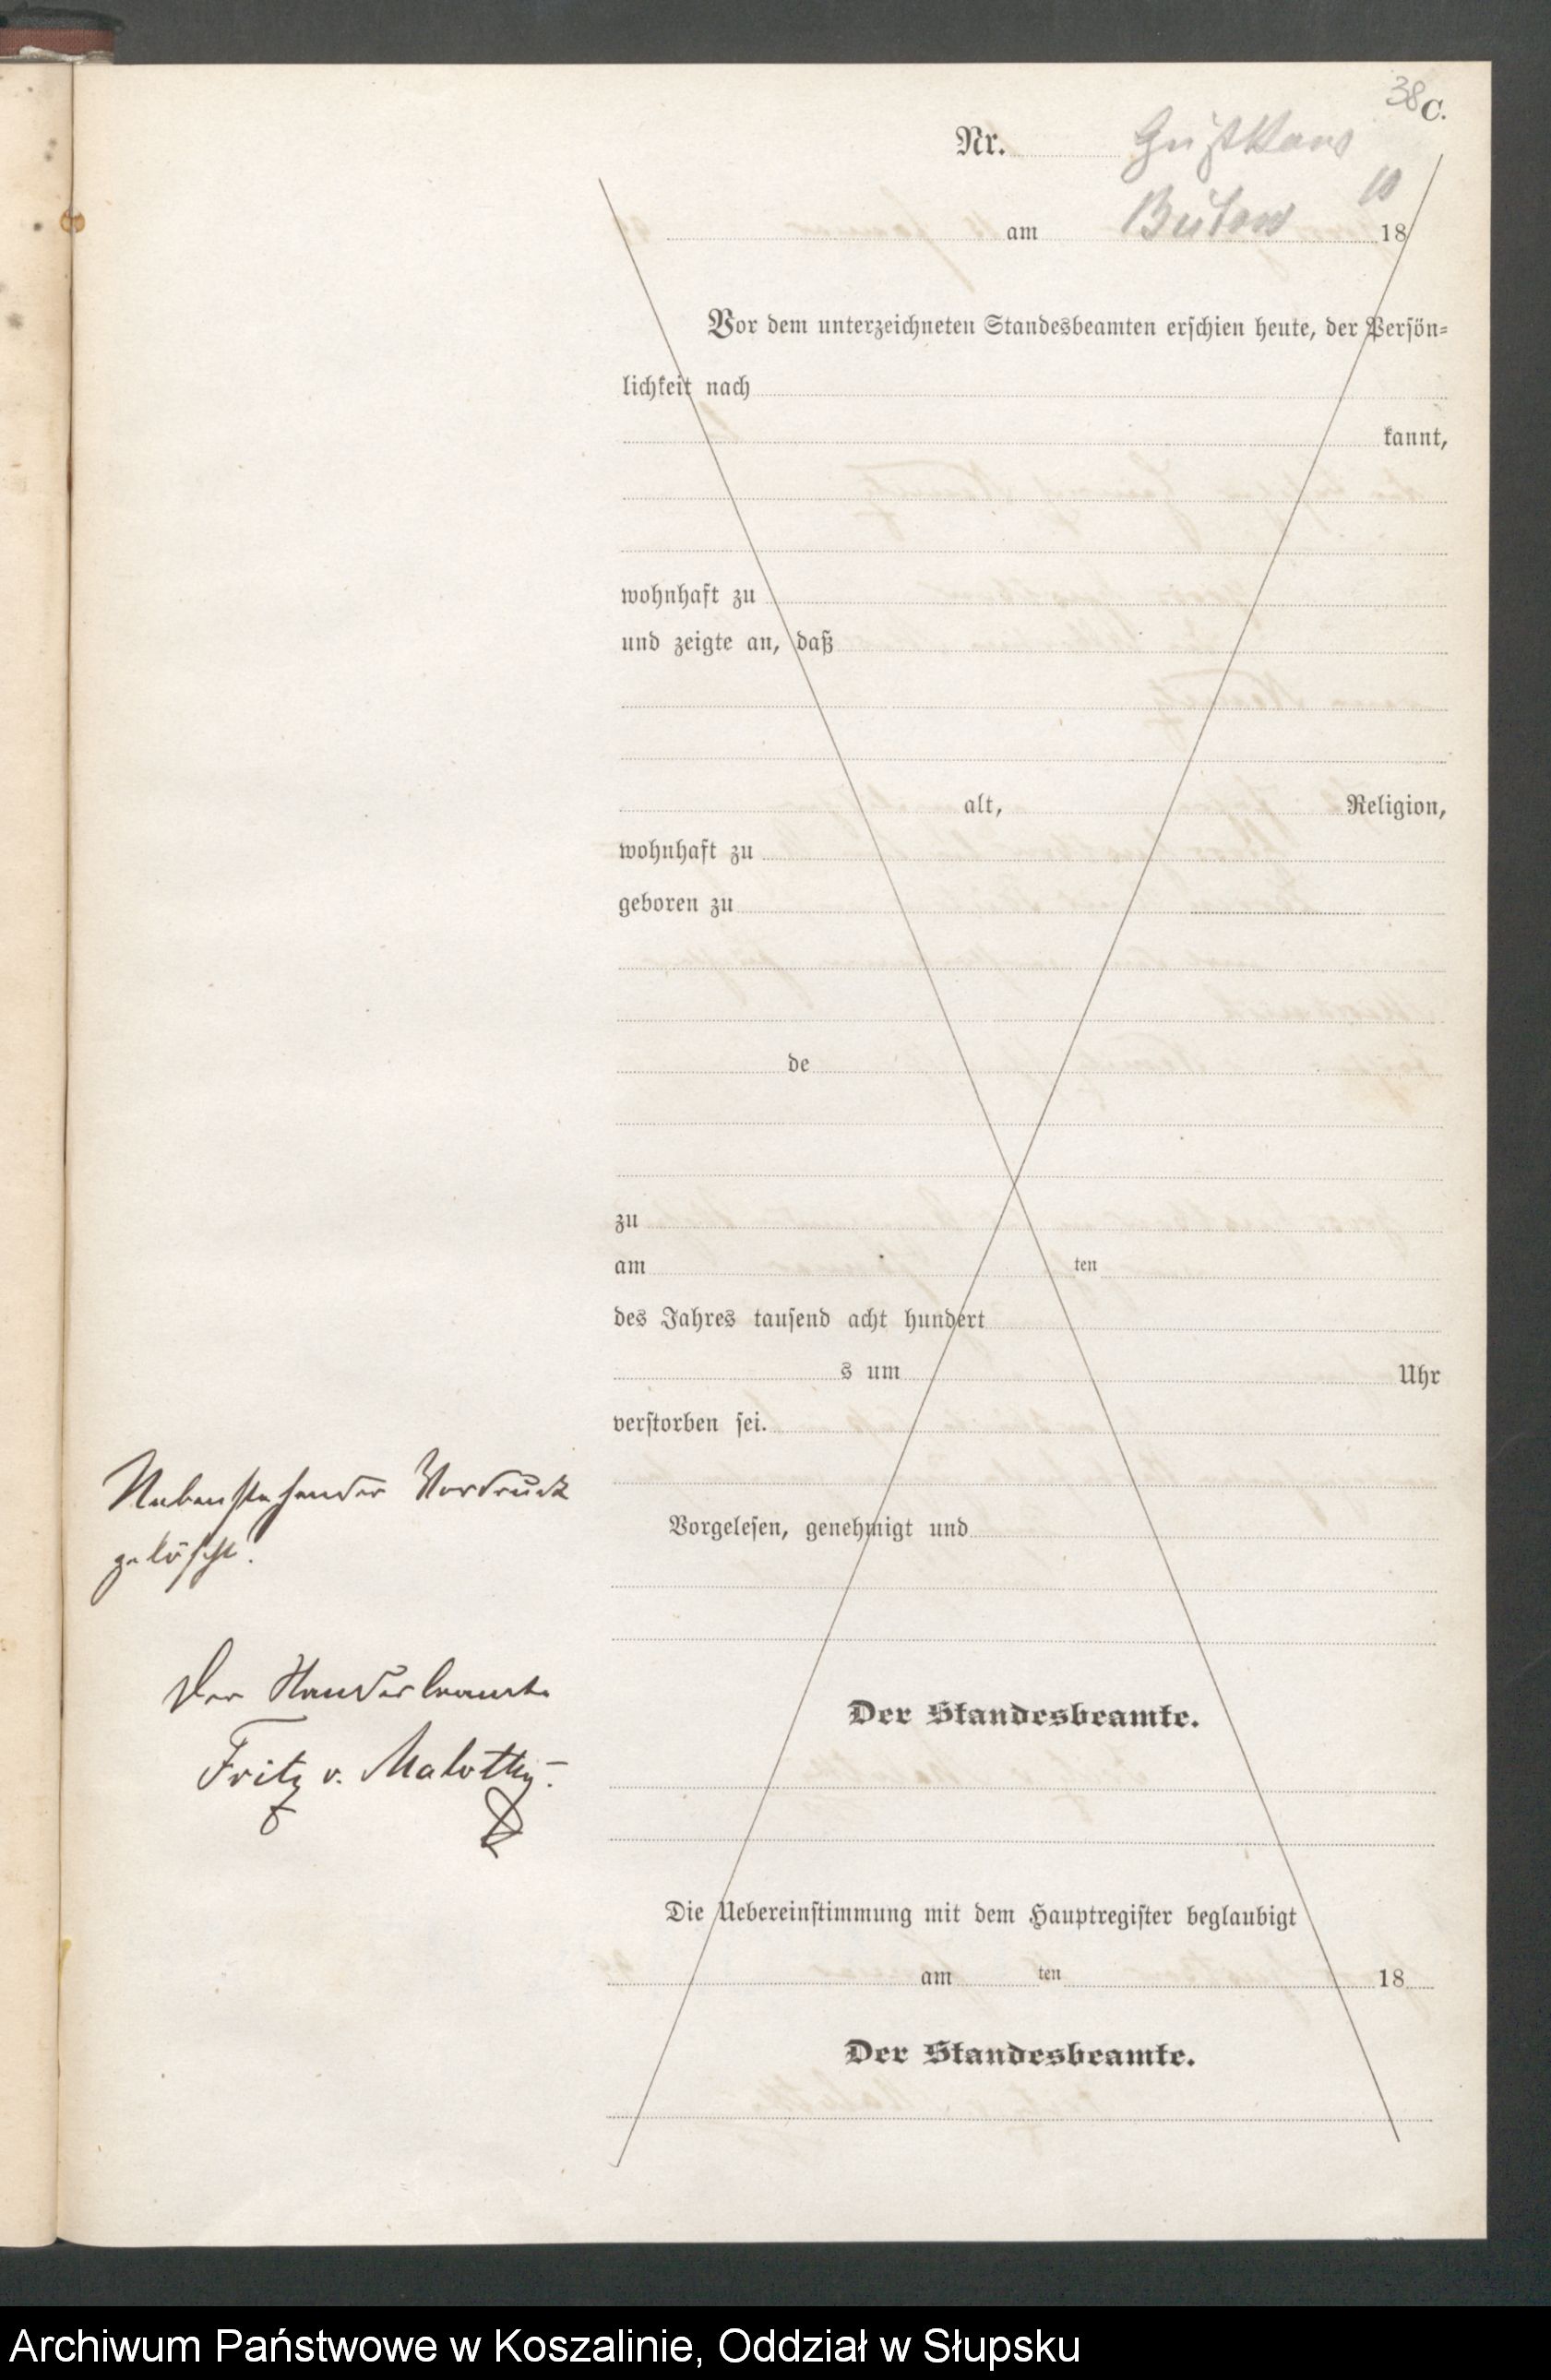 38 C.
Nr.
Bütow
10
am 18
Vor dem unterzeichneten Standesbeamten erschien heute, der Persön-
lichkeit nach
kannt,
wohnhaft zu
und zeigte an, daß
alt, Religion,
wohnhaft zu
geboren zu
de
zu
am ten
des Jahres tausend acht hundert
s um Uhr
verstorben sei.
Nebenstehender Vordruck
gelöscht.
Vorgelesen, genehmigt und
Der Standesbeamte
Fritz v. Malottky.
Der Standesbeamte.
Die Uebereinstimmung mit dem Hauptregister beglaubigt
am ten 18
Der Standesbeamte.
Archiwum Państwowe w Koszalinie, Oddział w Słupsku